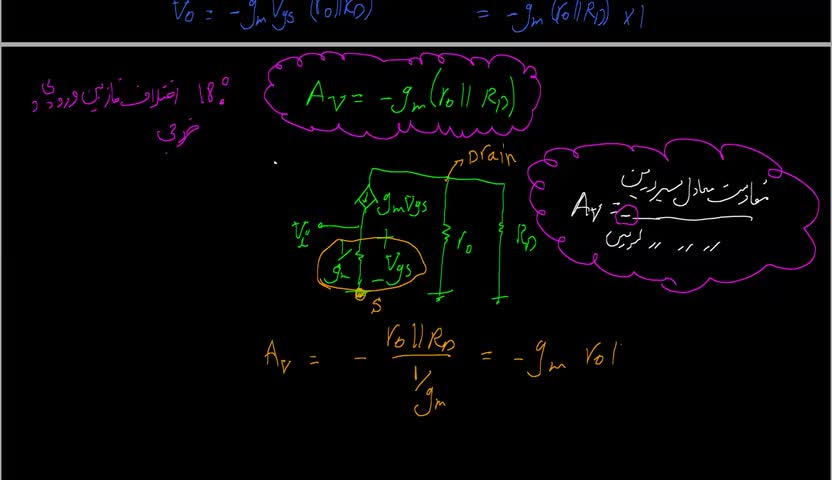 Vo = -gm Vgs (ro||RD)
= -gm (ro||RD) × 1
180° اختلاف فاز بین ورودی و
خروجی
Av = -gm (ro||RD)
Drain
gm Vgs
Vi
1/gm
+
Vgs
-
ro
RD
S
Av = - مقاومت معادل مسیر درین
" " " سورس
Av = - ro||RD / 1/gm = -gm ro|